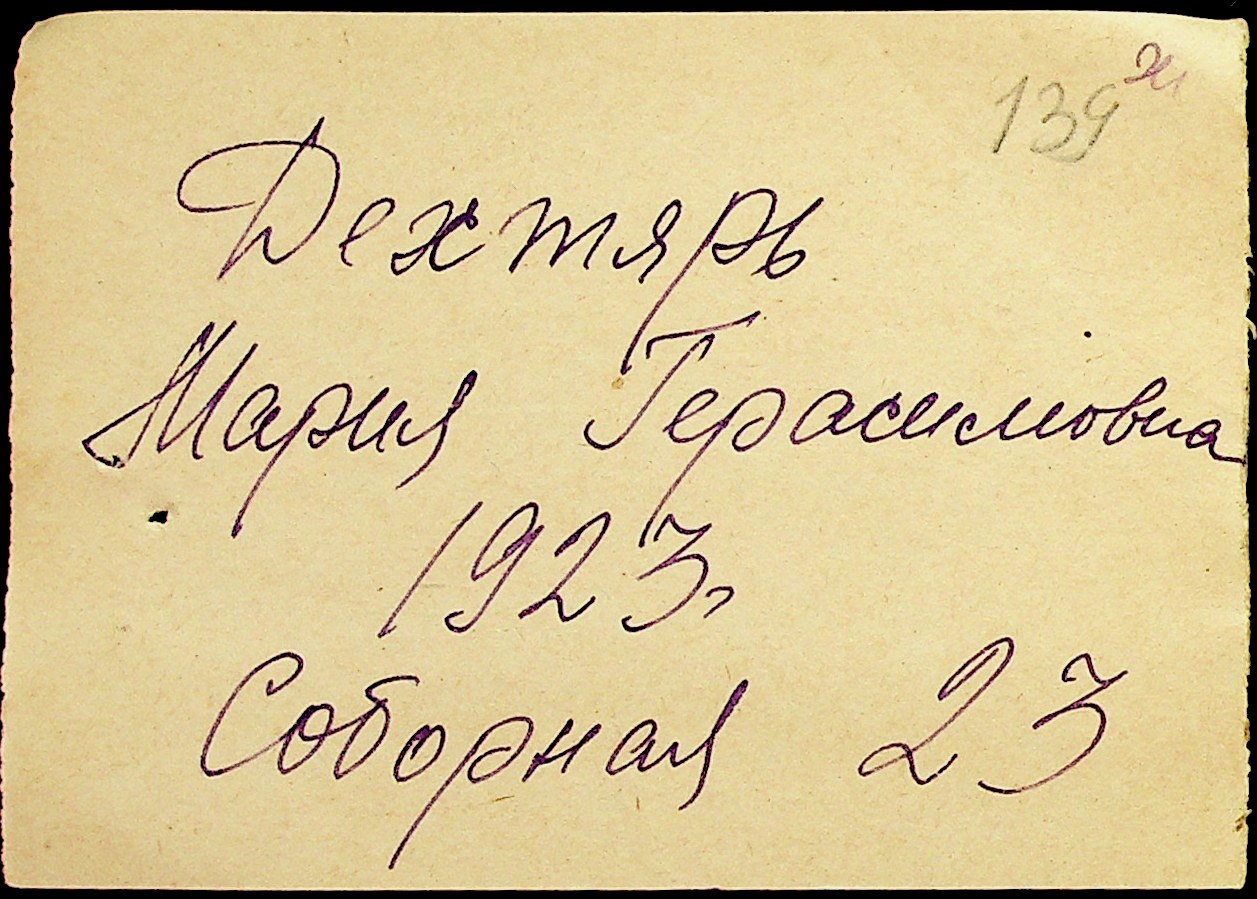 139
Дехтярь
Мария Герасимовна
1923,
Соборная 23